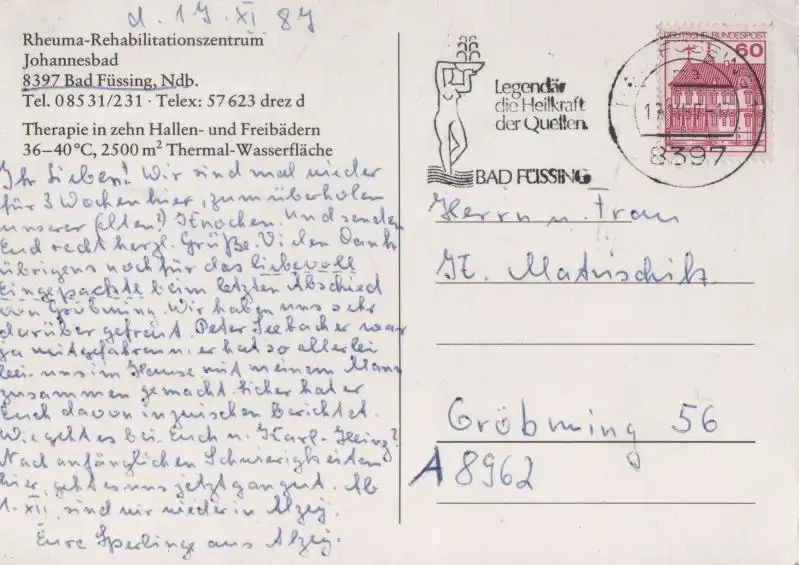 d. 17. XI 87
Rheuma-Rehabilitationszentrum
Johannesbad
8397 Bad Füssing, Ndb.
Tel. 0 85 31/231 · Telex: 57 623 drez d
Therapie in zehn Hallen- und Freibädern
36–40°C, 2500 m² Thermal-Wasserfläche
Ihr Lieben! Wir sind mal wieder
für 3 Wochen hier, zum überholen
unserer (alten?) Knochen. Und senden
Euch recht herzl. Grüße. Vielen Dank
übrigens noch für das liebevoll
Eingepackte beim letzten Abschied
von Gröbming. Wir haben uns sehr
darüber gefreut. Peter Seebacher war
ja mitgefahren u. er hat so allerlei
bei uns im Hause mit meinem Mann
zusammen gemacht. sicher hat er
Euch davon inzwischen berichtet.
Wie geht es bei Euch u. Karl-Heinz?
Nach anfänglichen Schwierigkeiten
hier, geht es uns jetzt ganz gut. Ab
1. XII. sind wir wieder in Alzey.
Eure Sperlinge aus Alzey.
Legendär
die Heilkraft
der Quellen.
BAD FÜSSING
DEUTSCHE BUNDESPOST
60
8397
Herrn u. Frau
K. Matuschik
Gröbming 56
A 8962